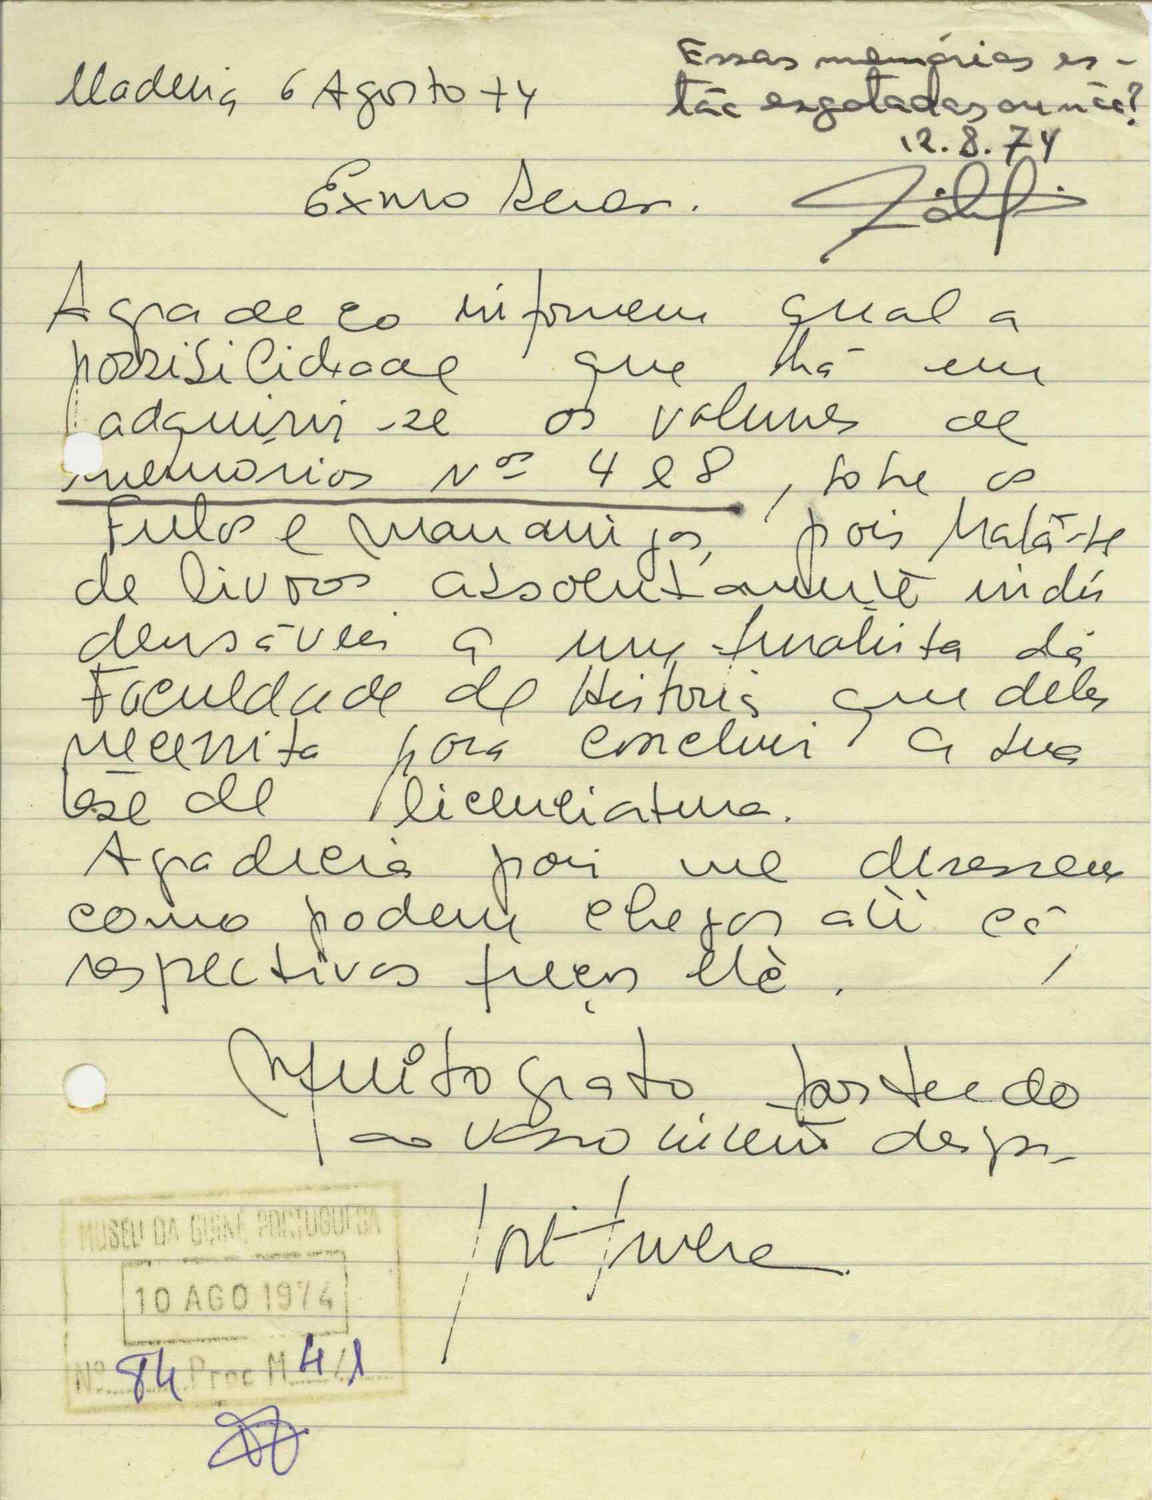 Madeira 6 Agosto 74
Essas memórias es-
tão esgotadas ou não?
12.8.74
Exmo Senhor.
Agradeço informem qual a
possibilidade que há em
adquirir-se os volumes de
memórias Nos 4 e 8, sobre os
Fulos e mananigas, pois trata-se
de livros absolutamente indis
densáveis a um finalista da
Faculdade de Historia que deles
necessita para concluir a sua
tese de licenciatura.
Agradecia pois me dissessem
como podem chegar até cá,
respectivos preços etc.
Muito grato
ao Vosso
MUSEU DA GUINÉ PORTUGUESA
10 AGO 1974
Nº 84 Proc M 4/1